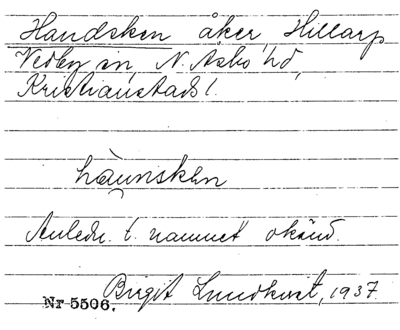 Handsken åker, Hillarp
Vedby sn, N. Åsbo hd,
Kristianstads l.
hàu̯nsken
Anledn. t. namnet okänd.
Birgit Lundkvist, 1937.
Nr 5506.